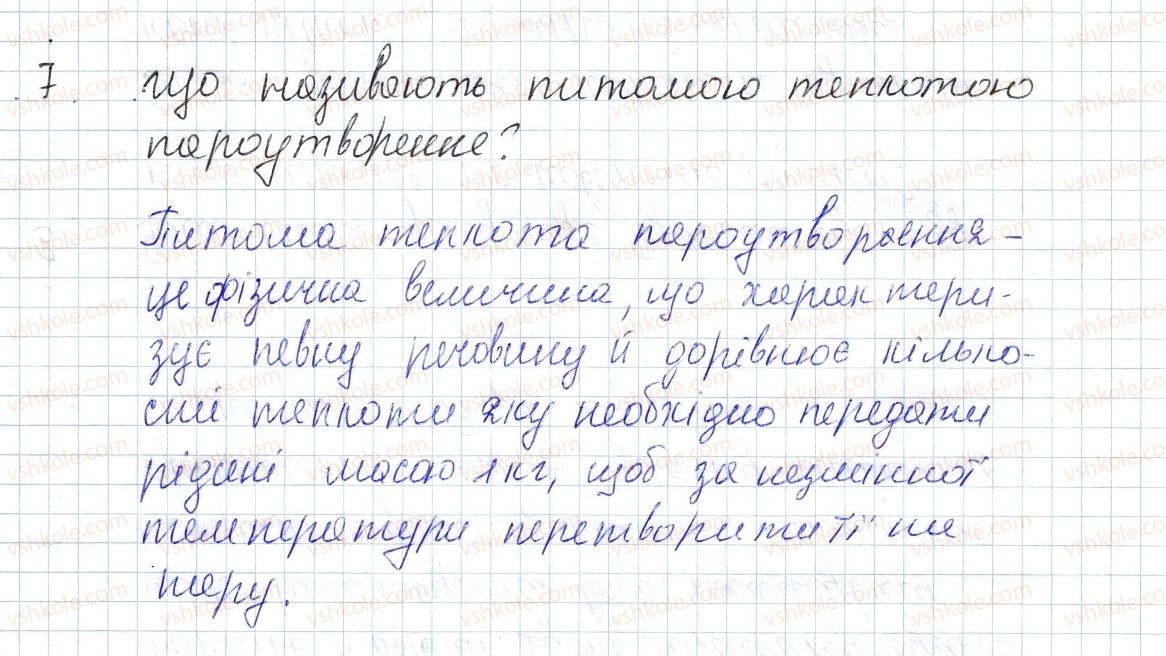 7. Що називають питомою теплотою
пароутворення?
Питома теплота пароутворення –
це фізична величина, що характери-
зує певну речовину й дорівнює кілько-
сті теплоти яку необхідно передати
рідині масою 1 кг, щоб за незмінної
температури перетворити її на
пару.